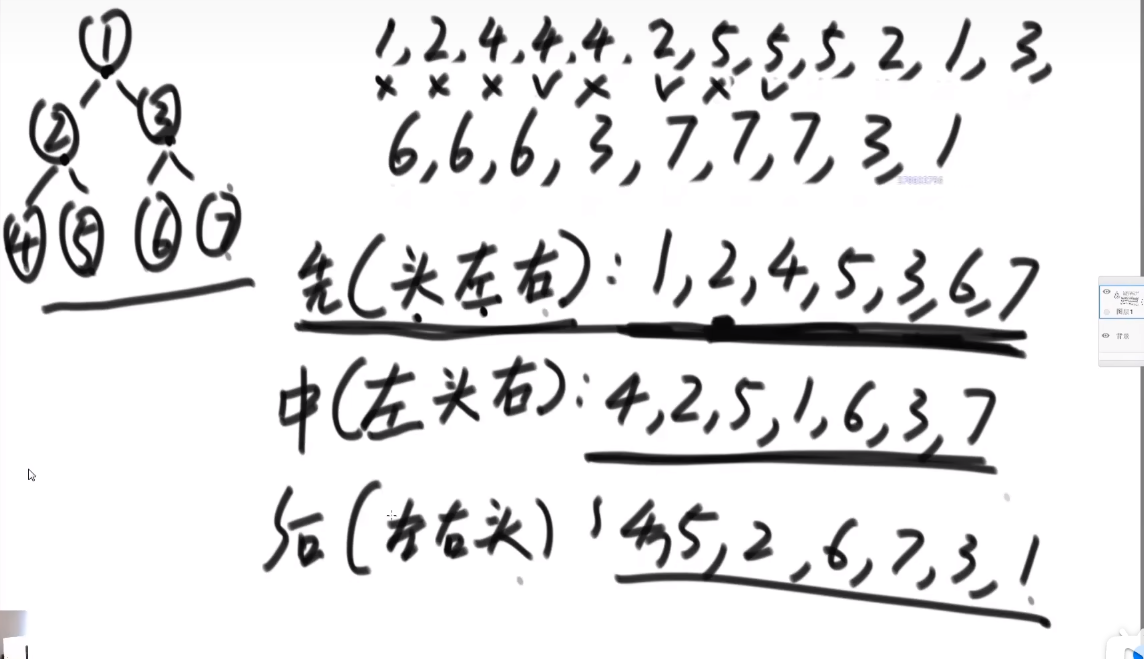 ①
1,2,4,4,4.2,5,5,5,2,1,3,
× × × v × v × v
② ③
6,6,6,3,7,7,7,3,1
④ ⑤ ⑥ ⑦
先(头左右):1,2,4,5,3,6,7
中(左头右):4,2,5,1,6,3,7
后(左右头):4,5,2,6,7,3,1